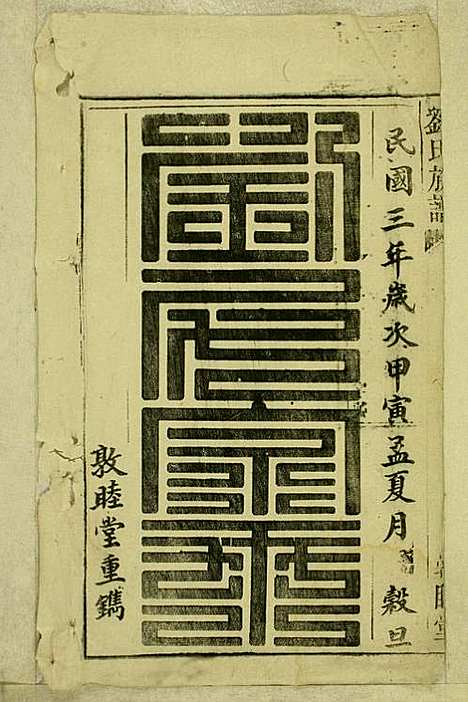 劉氏族譜
民國三年歲次甲寅孟夏月 穀旦
劉氏宗譜
敦睦堂重鐫